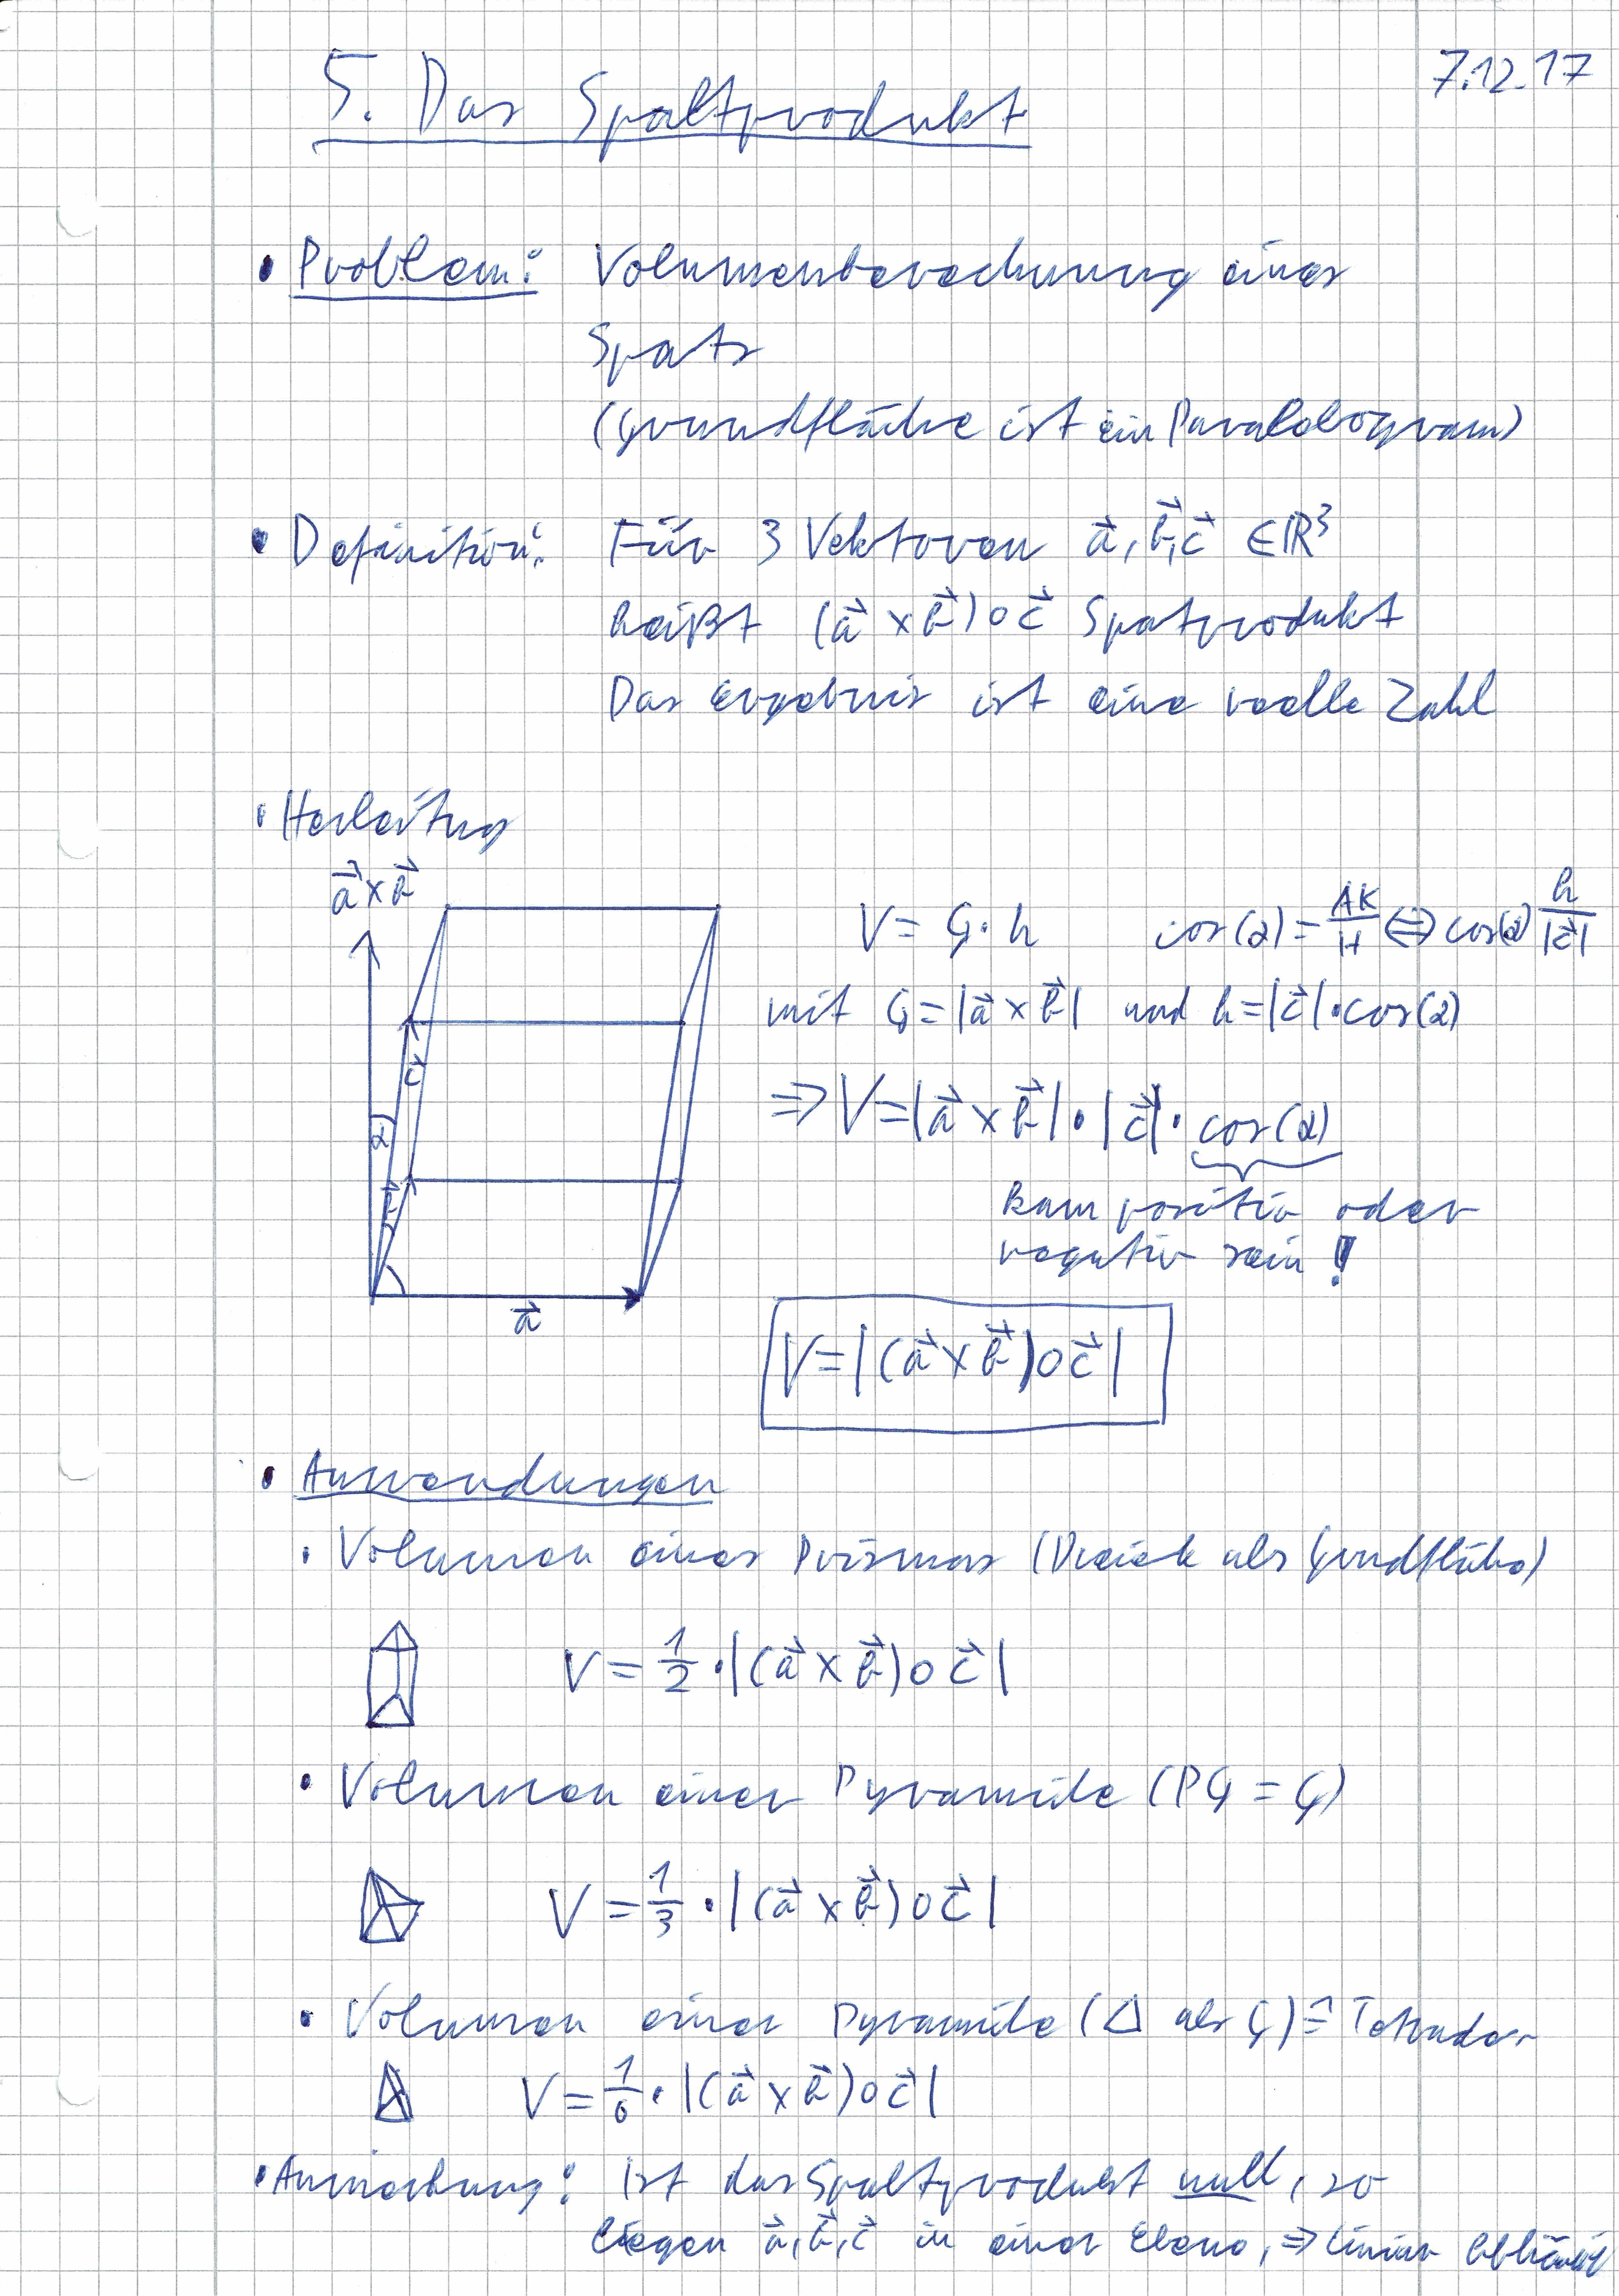 7.12.17
5. Das Spaltprodukt
• Problem: Volumenberechnung eines
Spats
(Grundfläche ist ein Paralelogram)
• Definition: Für 3 Vektoren a⃗, b⃗, c⃗ ∈ ℝ³
heißt (a⃗ × b⃗) ∘ c⃗ Spatprodukt
Das Ergebnis ist eine reelle Zahl
• Herleitung
a⃗ × b⃗
V = G · h cos(α) = AK/H ⇔ cos(α) h/|c⃗|
mit G = |a⃗ × b⃗| und h = |c⃗| · cos(α)
c⃗
⇒ V = |a⃗ × b⃗| · |c⃗| · cos(α)
α
b⃗
kann positiv oder
negativ sein!
a⃗
V = |(a⃗ × b⃗) ∘ c⃗|
• Anwendungen
• Volumen eines Prismas (Dreieck als Grundfläche)
V = 1/2 · |(a⃗ × b⃗) ∘ c⃗|
• Volumen einer Pyramide (PG = G)
V = 1/3 · |(a⃗ × b⃗) ∘ c⃗|
• Volumen einer Pyramide (△ als G) ≙ Tetraeder
V = 1/6 · |(a⃗ × b⃗) ∘ c⃗|
• Anmerkung: Ist das Spaltprodukt null, so
liegen a⃗, b⃗, c⃗ in einer Ebene, ⇒ linear abhängig